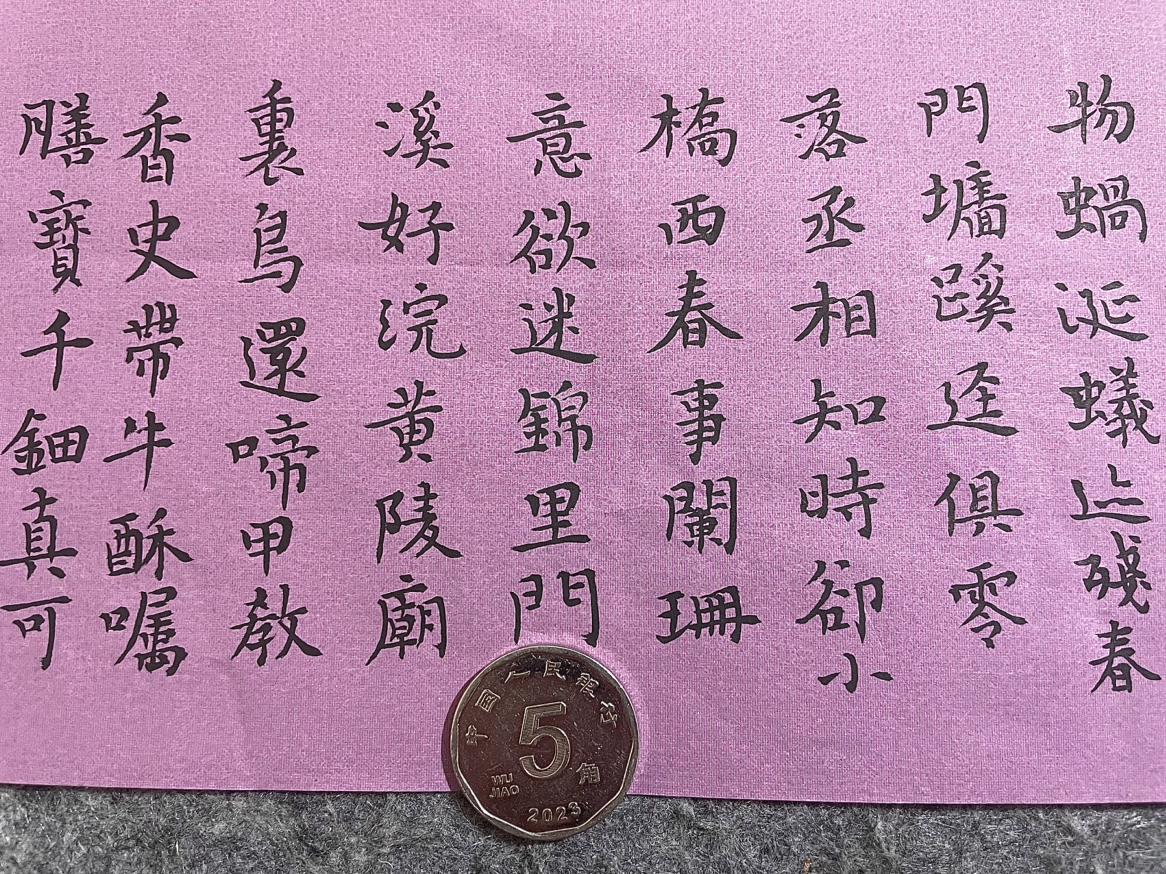 物蝸涎蟻迹殘春
門墻蹊迳俱零
落丞相知時卻小
橋西春事闌珊
意欲迷錦里門
溪好浣黄陵廟
裏鳥還啼甲教
香史帶牛酥囑
膳寶千鈿真可
中国人民银行
5
角
WU
JIAO
2023